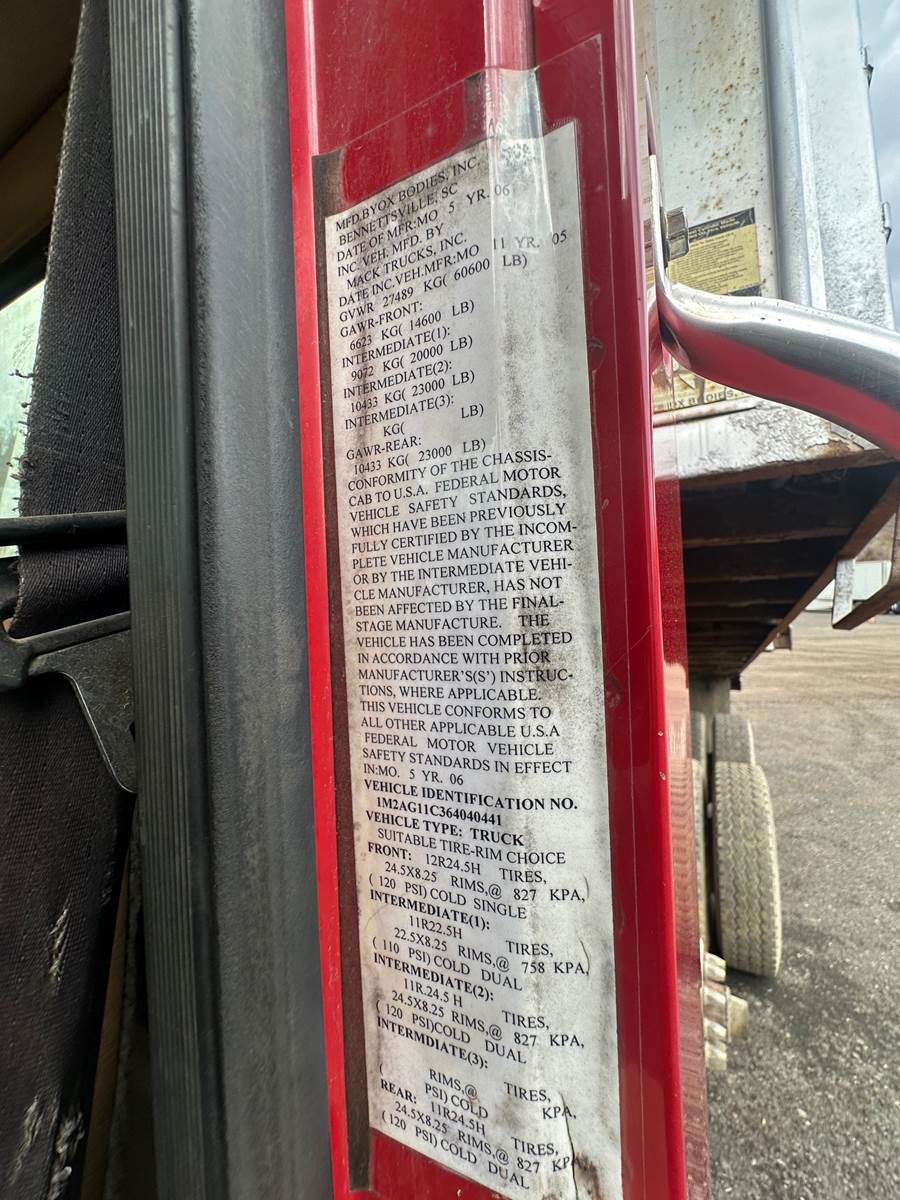 MFD.BYOX BODIES, INC.
BENNETTSVILLE, SC
DATE OF MFR:MO 5 YR. 06
INC. VEH. MFD. BY
MACK TRUCKS, INC.
DATE INC.VEH.MFR:MO 11 YR. 05
GVWR 27489 KG( 60600 LB)
GAWR-FRONT:
6623 KG( 14600 LB)
INTERMEDIATE(1):
9072 KG( 20000 LB)
INTERMEDIATE(2):
10433 KG( 23000 LB)
INTERMEDIATE(3):
KG( LB)
GAWR-REAR:
10433 KG( 23000 LB)
CONFORMITY OF THE CHASSIS-
CAB TO U.S.A. FEDERAL MOTOR
VEHICLE SAFETY STANDARDS,
WHICH HAVE BEEN PREVIOUSLY
FULLY CERTIFIED BY THE INCOM-
PLETE VEHICLE MANUFACTURER
OR BY THE INTERMEDIATE VEHI-
CLE MANUFACTURER, HAS NOT
BEEN AFFECTED BY THE FINAL-
STAGE MANUFACTURE. THE
VEHICLE HAS BEEN COMPLETED
IN ACCORDANCE WITH PRIOR
MANUFACTURER'S(S') INSTRUC-
TIONS, WHERE APPLICABLE.
THIS VEHICLE CONFORMS TO
ALL OTHER APPLICABLE U.S.A
FEDERAL MOTOR VEHICLE
SAFETY STANDARDS IN EFFECT
IN:MO. 5 YR. 06
VEHICLE IDENTIFICATION NO.
1M2AG11C364040441
VEHICLE TYPE: TRUCK
SUITABLE TIRE-RIM CHOICE
FRONT: 12R24.5H TIRES,
24.5X8.25 RIMS,@ 827 KPA,
( 120 PSI) COLD SINGLE
INTERMEDIATE(1):
11R22.5H TIRES,
22.5X8.25 RIMS,@ 758 KPA,
( 110 PSI) COLD DUAL
INTERMEDIATE(2):
11R.24.5 H TIRES,
24.5X8.25 RIMS,@ 827 KPA,
( 120 PSI)COLD DUAL
INTERMDIATE(3):
TIRES,
RIMS,@ KPA,
( PSI) COLD
REAR: 11R24.5H TIRES,
24.5X8.25 RIMS,@ 827 KPA
( 120 PSI) COLD DUAL